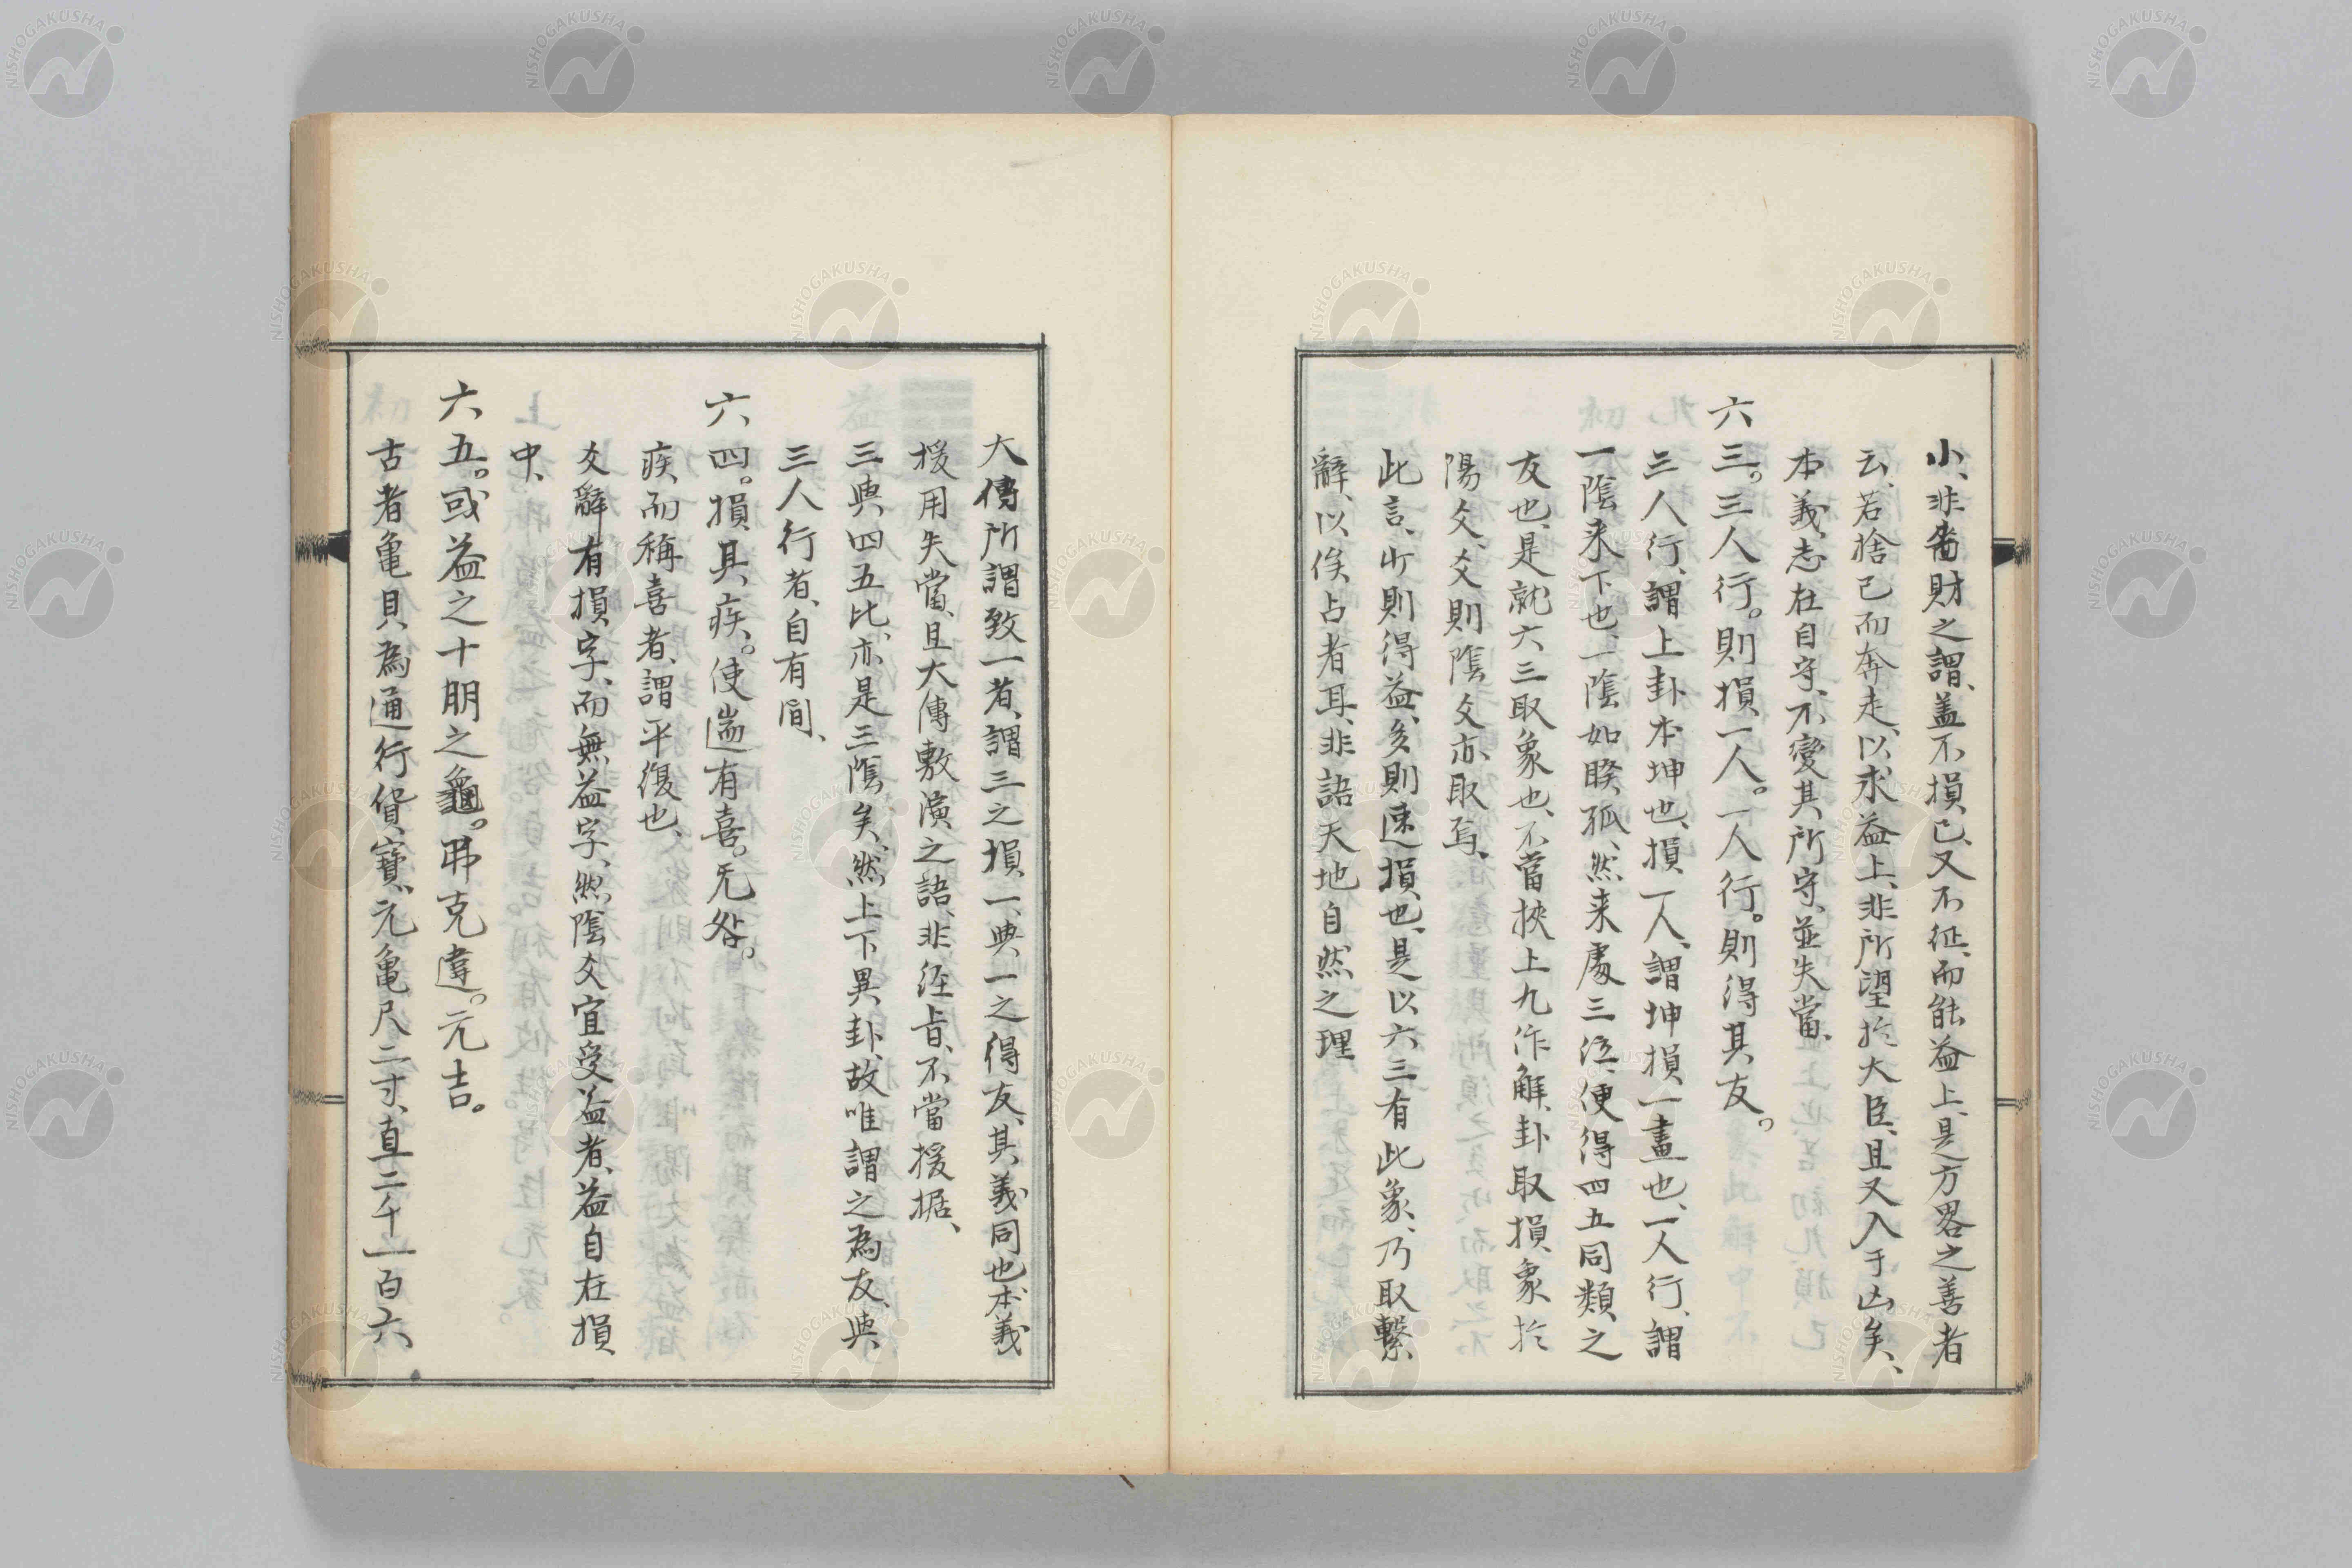 小、非嗇財之謂、蓋不損己、又不征、而能益上、是方畧之善者
云、若捨己而奔走、以求益上、非所望於大臣、且又入于凶矣、
本義、志在自守、不變其所守、並失當、
六三。三人行。則損一人。一人行。則得其友。
三人行、謂上卦本坤也、損一人、謂坤損一畫也、一人行、謂
一陰来下也、一陰如睽孤、然来處三位、便得四五同類、之
友也、是就六三取象也、不當挾上九作解、卦取損象、於
陽爻、爻則陰爻亦取焉、
此言、少則得益、多則速損也、是以六三有此象、乃取繫
辭、以俟占者耳、非語天地自然之理
大傳所謂致一者、謂三之損一、與一之得友、其義同也、本義
援用失當、且大傳敷演之語、非經旨、不當援据、
三與四五比、亦是三陰矣、然上下異卦、故唯謂之為友、與
三人行者、自有間、
六四。損其疾。使遄有喜。无咎。
疾、而稱喜者、謂平復也、
爻辭有損字、而無益字、然陰爻宜受益者、益自在損
中、
六五。或益之十朋之龜。弗克違。元吉。
古者亀貝為通行貨寶、元亀尺二寸、直二千一百六
NISHOGAKUSHA